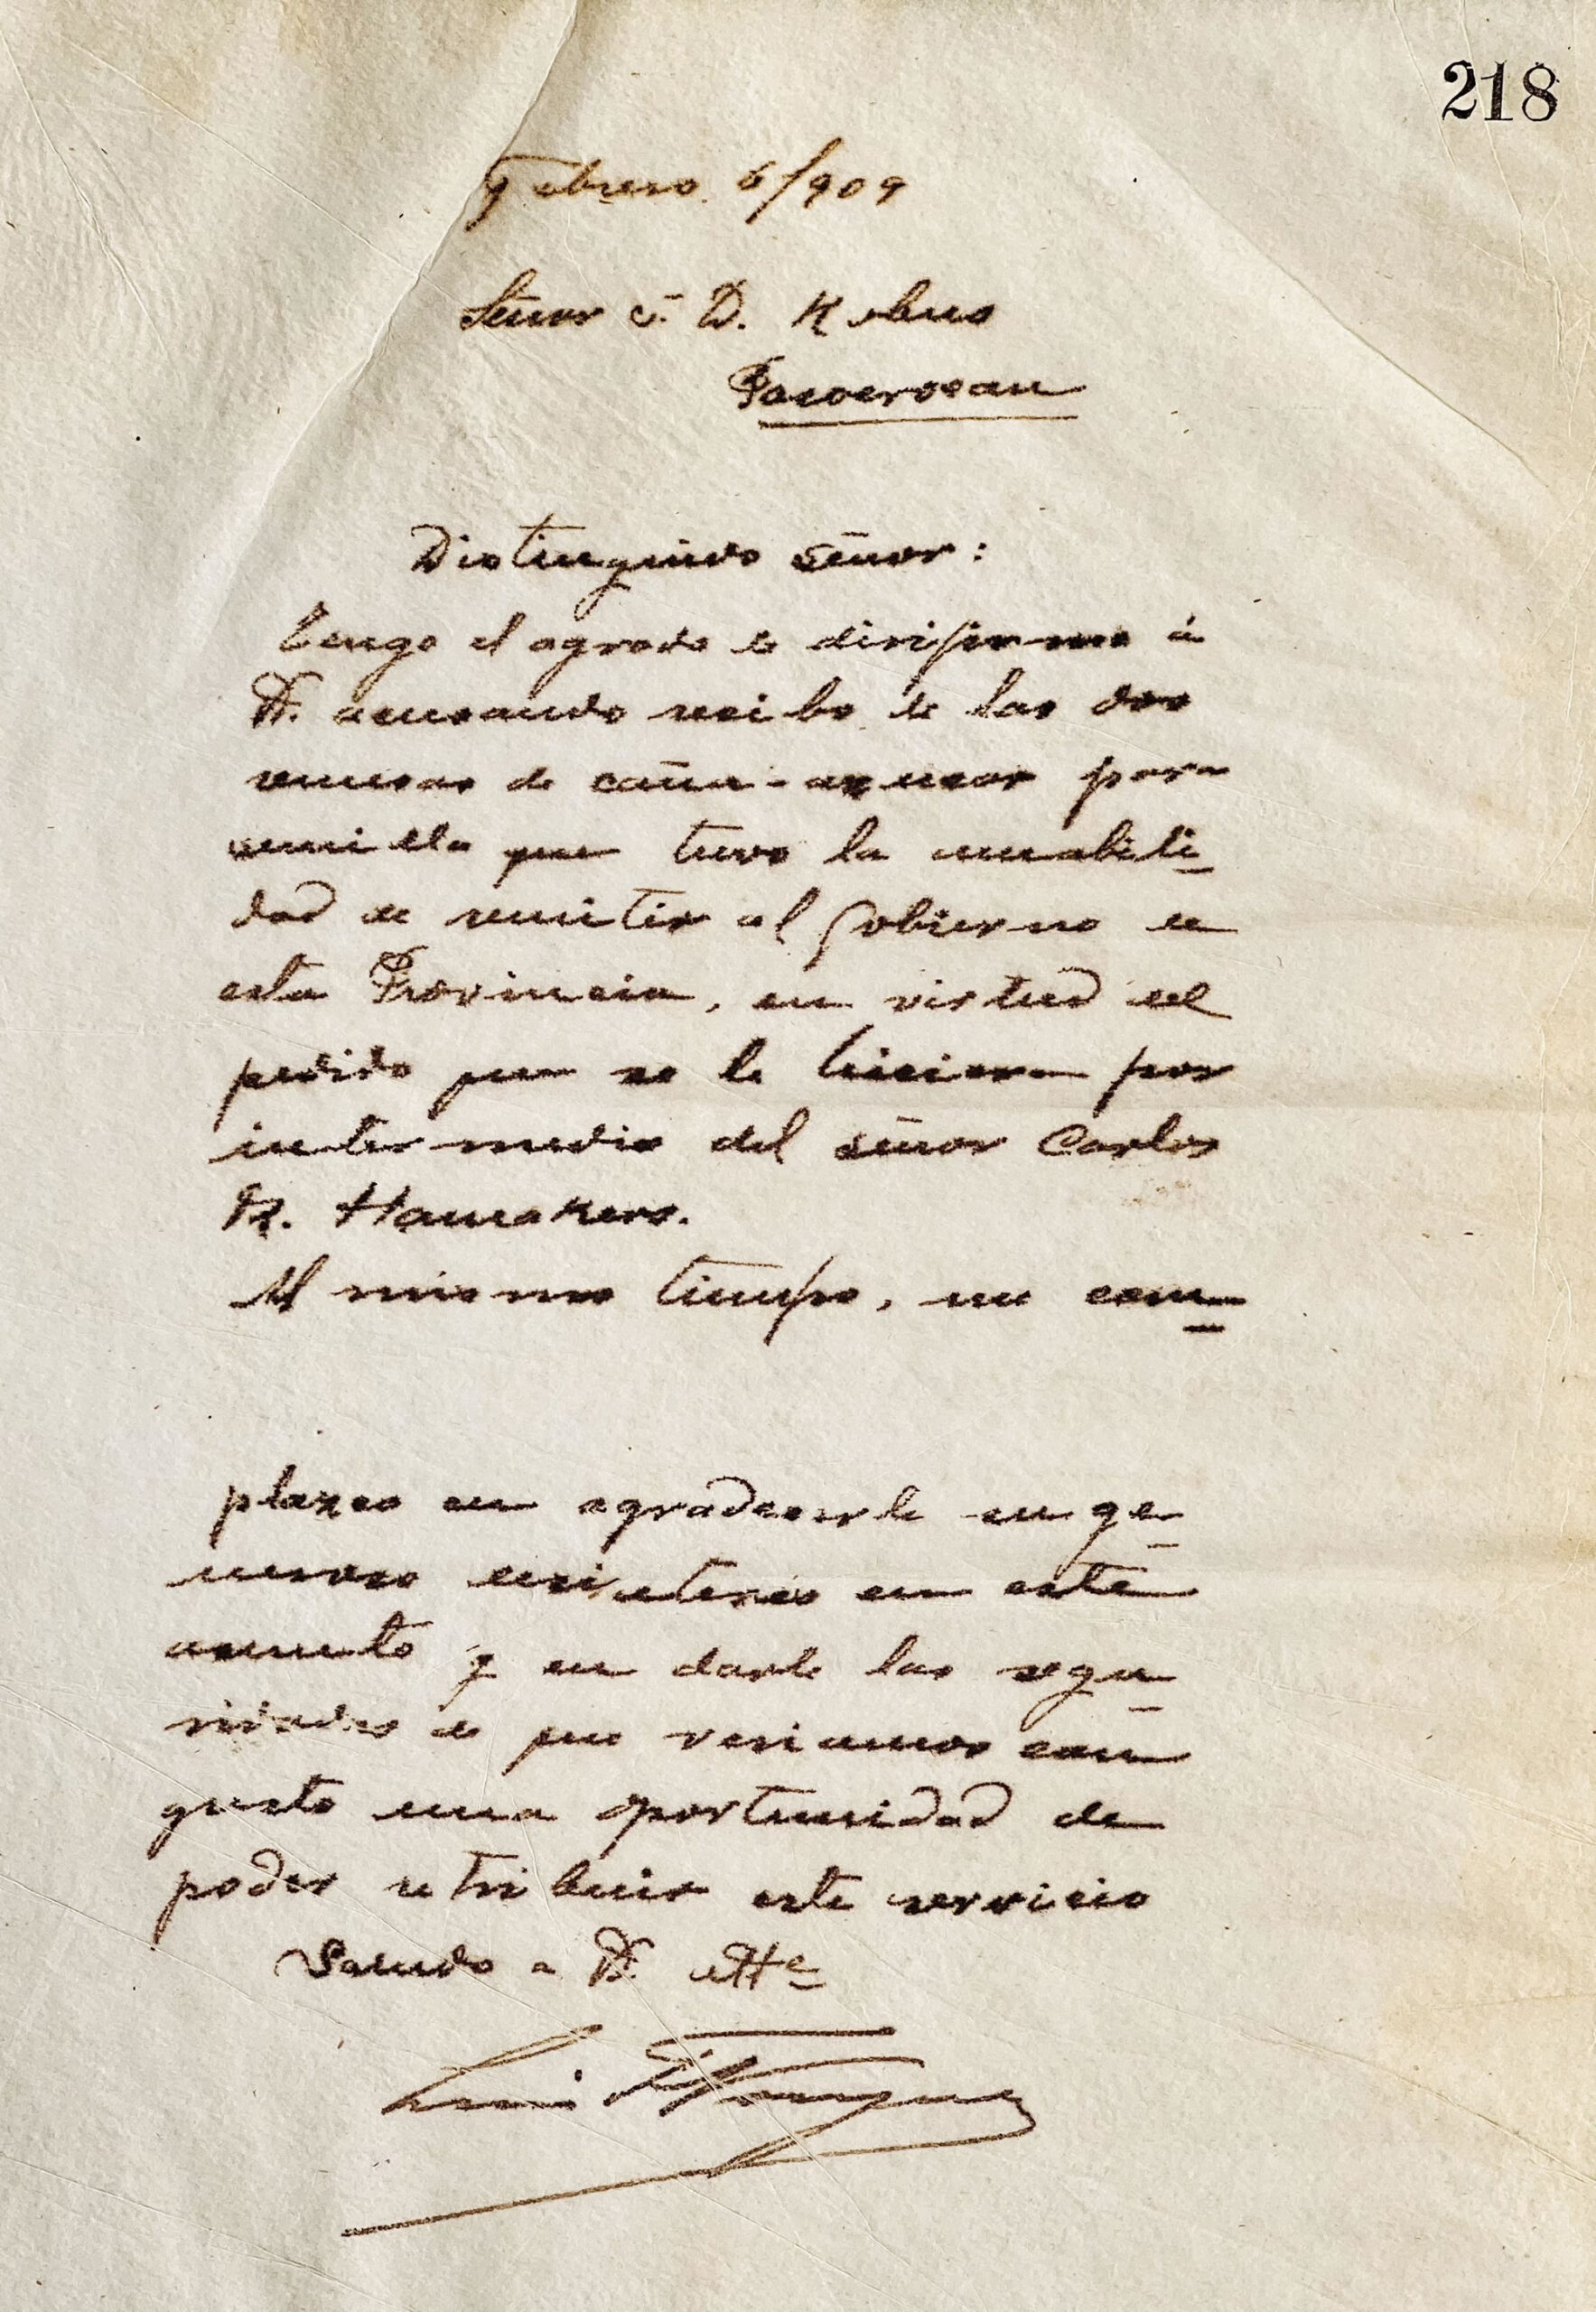 218
Febrero 6/909
Señor J. D. Kobus
Pasoeroean
Distinguido señor:
Tengo el agrado de dirijirme á
V. acusando recibo de las dos
remesas de caña-azucar para
semilla que tuvo la amabili-
dad de remitir al Gobierno de
esta Provincia, en virtud del
pedido que se le hiciera por
intermedio del señor Carlos
R. Hamakers.
Al mismo tiempo, me com-
plazco en agradecerle su ge-
neroso desinterés en este
asunto y en darle las segu-
ridades de que veriamos con
gusto una oportunidad de
poder retribuir este servicio
Saludo a V. atte
Luis F.